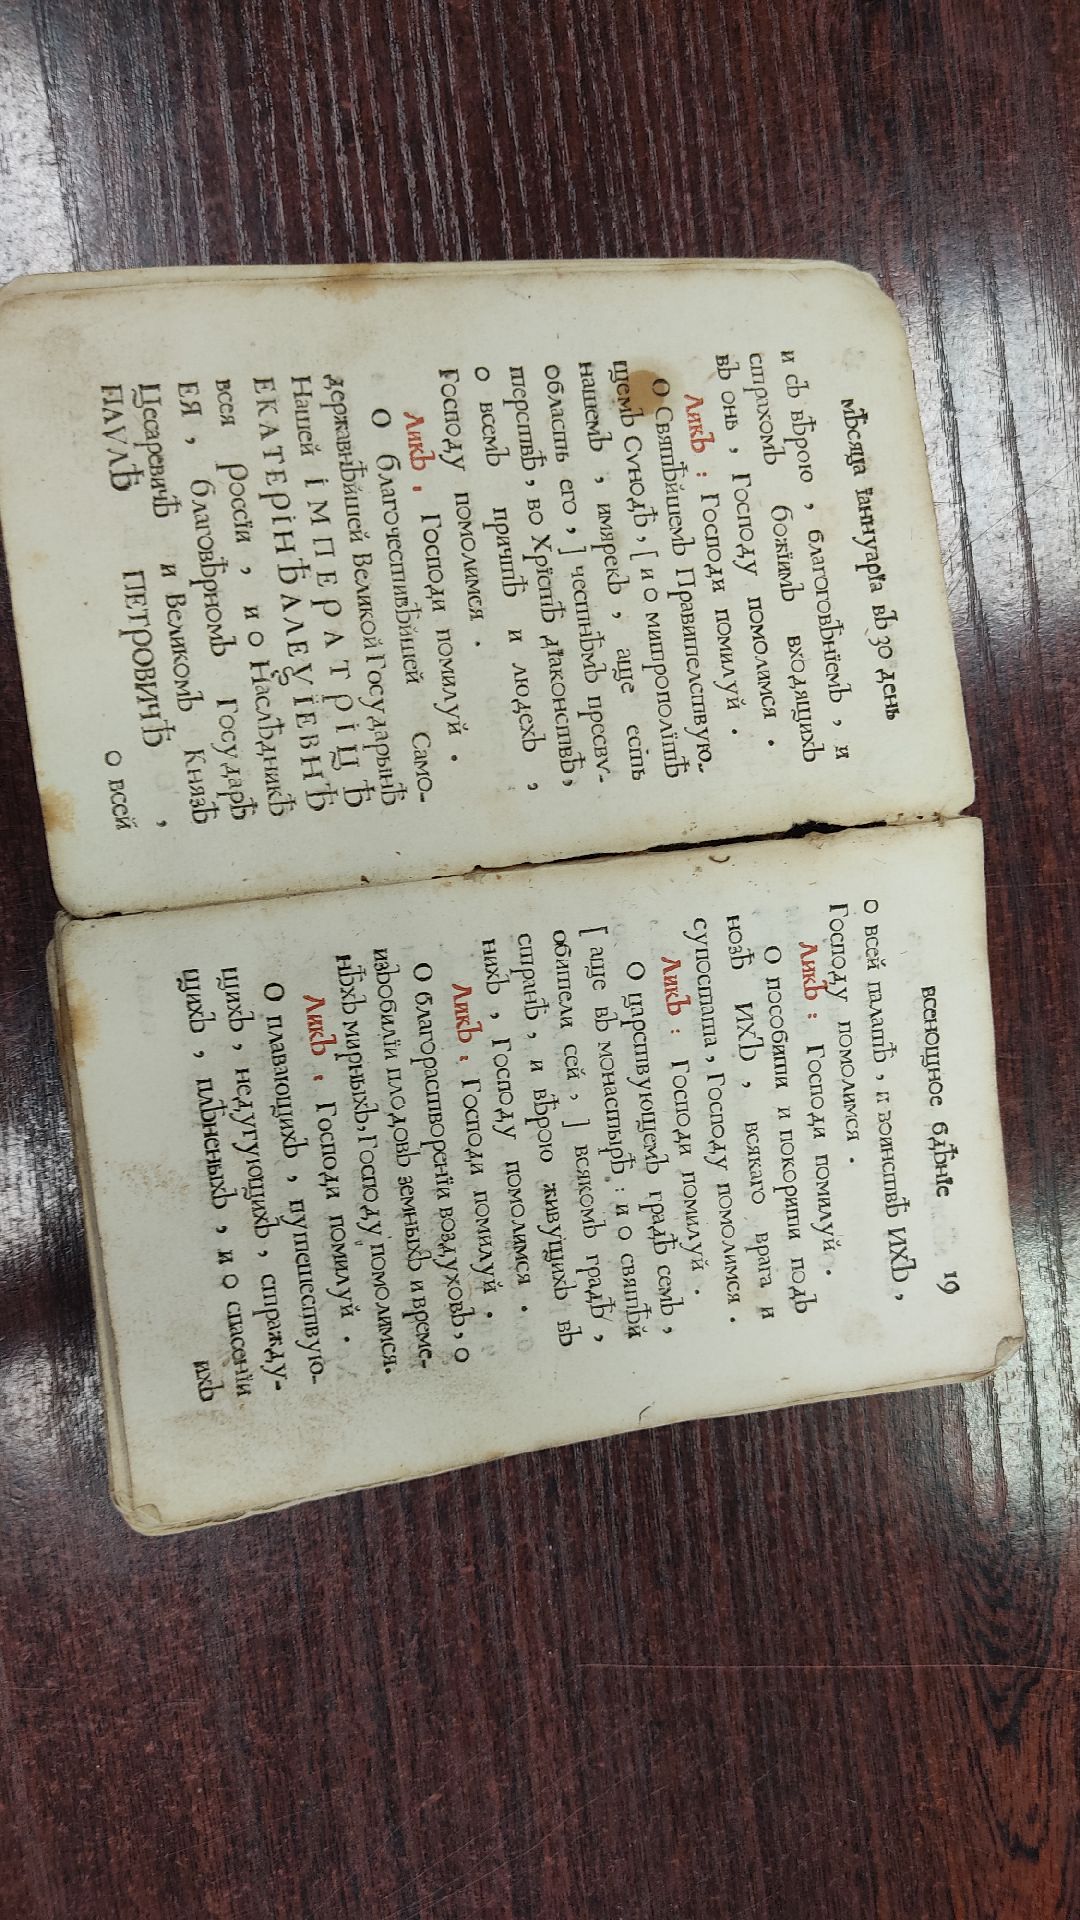 мѣсяца їаннуарїа въ 30 день
и съ вѣрою , благоговѣнїемъ , и
страхомъ божїимъ входящихъ
въ онь , Господу помолимся .
Ликъ : Господи помилуй .
О Святѣйшемъ Правителствую-
щемъ Сѵнодѣ , [ и о митрополїтѣ
нашемъ , имярекъ , аще есть
область его , ] честнѣмъ пресву-
терствѣ , во Хрїстѣ дїаконствѣ ,
о всемъ причтѣ и людехъ ,
Господу помолимся .
Ликъ . Господи помилуй .
О благочестивѣйшей Само-
державнѣйшей Великой Государынѣ
Нашей іМПЕРАТРіЦѢ
ЕКАТЕРіНѢ АЛЕѮІЕВНѢ
всея россїи , и о Наслѣдникѣ
ЕЯ , благовѣрномъ Государѣ
Цесаревичѣ и Великомъ Князѣ
ПАѴЛѢ ПЕТРОВИЧѢ ,
о всей
всенощное бдѣнїе 19
о всей палатѣ , и воинствѣ ИХЪ ,
Господу помолимся .
Ликъ : Господи помилуй .
О пособити и покорити подъ
нозѣ ИХЪ , всякаго врага и
супостата , Господу помолимся .
Ликъ : Господи помилуй .
О царствующемъ градѣ семъ ,
[ аще въ монастырѣ : и о святѣй
обители сей , ] всякомъ градѣ ,
странѣ , и вѣрою живущихъ въ
нихъ , Господу помолимся .
Ликъ . Господи помилуй .
О благорастворенїи воздуховъ , о
изъобилїи плодовъ земныхъ и време-
нѣхъ мирныхъ , Господу помолимся .
Ликъ . Господи помилуй .
О плавающихъ , путешествую-
щихъ , недугующихъ , стражду-
щихъ , плѣненыхъ , и о спасенїи
ихъ